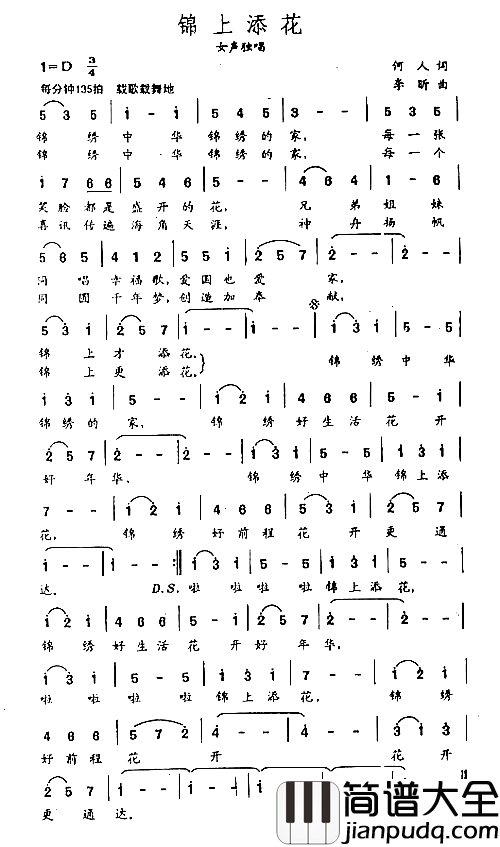 锦上添花
女声独唱
1=D 3/4
何人词
每分钟135拍 载歌载舞地
李昕曲
5 3 5 | i - i | 5 4 5 | i - - | 5 3 5 |
锦 绣 中 华 锦绣的 家, 每一张
锦 绣 中 华 锦绣的 家, 每一个
i 7 6 6 | 5 4 6 | 5 - - | 4 6 6 | i - 6 |
笑脸都是 盛开的 花, 兄弟 姐妹
喜讯传遍 海角天 涯, 神舟 扬帆
5 6 5 | 4 1 2 | 5 5 i | 2 5 7 | 2 - - |
同唱 幸福歌,爱国也 爱 家,
同圆 千年梦,创造加 奉 献,
5 3 i | 2 5 7 | i - - | i - - | 5 - 5 |
锦 上 才 添 花,
锦绣中华
锦 上 更 添 花。
i 3 i | 2 - - | i 2 i | 4 6 6 | 5 - i |
锦绣的 家, 锦 绣 好生活 花 开
2 5 7 | 2 - - | 2 - - | 5 - 5 | i 3 i |
好 年 华, 锦绣中华 锦上添
7 - - | i 2 i | 4 6 6 | 5 - i | 2 5 7 |
花, 锦 绣 好前程 花 开 更 通
i - - | i - - :| i 5 - 5 | 5 - 5 | i 3 i | 2 - - |
达。 D.S. 啦 啦 啦 啦 锦上添 花,
i 2 i | 4 6 6 | 5 - i | 2 5 7 | 2 - - | 2 - - |
锦 绣 好生活 花 开 好 年 华,
i 3 i | 5 - 5 | i 3 i | 7 - - | i 2 i |
啦 啦 啦 啦 锦上添 花, 锦 绣
4 6 6 | 5 7 2 | 4 - - | 4 - - | 5 - i |
好前程 花 开 花 开
2 5 7 | i - - | i - - | i - - | i
更 通 达。
简谱大全
jianpudq.com